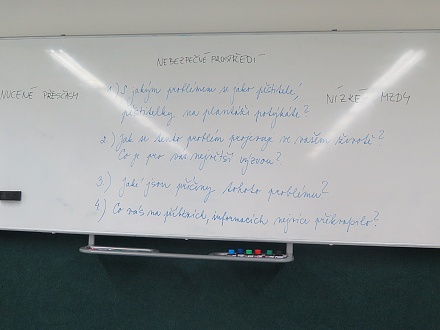 NEBEZPEČNÉ PROSTŘEDÍ
NUCENÉ PŘESČASY
NÍZKÉ MZDY
1.) S jakým problémem se jako pěstitelé,
pěstitelky na plantáži potýkáte?
2.) Jak se tento problém projevuje ve vašem životě?
Co je pro vás největší výzvou?
3.) Jaké jsou příčiny tohoto problému?
4.) Co vás na příbězích, informacích nejvíce překvapilo?